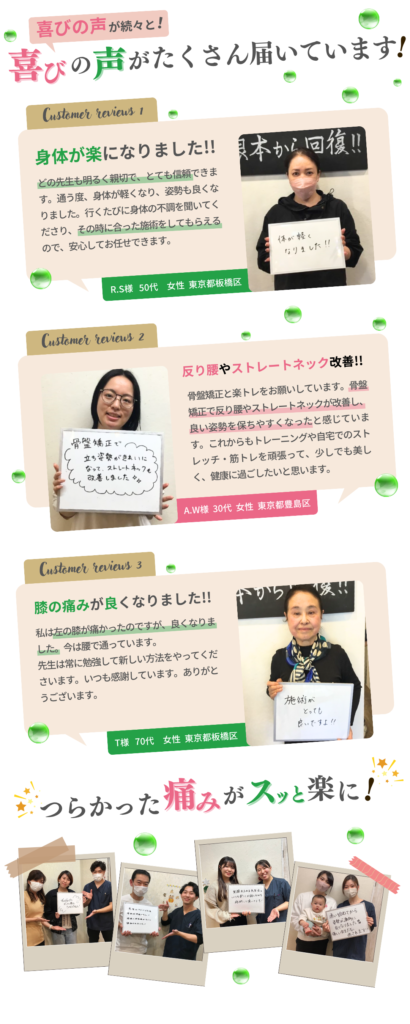 喜びの声が続々と!
喜びの声がたくさん届いています!
Customer reviews 1
身体が楽になりました!!
どの先生も明るく親切で、とても信頼できま
す。通う度、身体が軽くなり、姿勢も良くな
りました。行くたびに身体の不調を聞いてく
ださり、その時に合った施術をしてもらえる
ので、安心してお任せできます。
根本から回復!!
体が軽く
なりました!!
R.S様 50代 女性 東京都板橋区
Customer reviews 2
反り腰やストレートネック改善!!
骨盤矯正と楽トレをお願いしています。骨盤
矯正で反り腰やストレートネックが改善し、
良い姿勢を保ちやすくなったと感じていま
す。これからもトレーニングや自宅でのスト
レッチ・筋トレを頑張って、少しでも美し
く、健康に過ごしたいと思います。
骨盤矯正で
立ち姿勢がきれいに
なって ストレートネックも
改善しました
A.W様 30代 女性 東京都豊島区
Customer reviews 3
膝の痛みが良くなりました!!
私は左の膝が痛かったのですが、良くなりま
した。今は腰で通っています。
先生は常に勉強して新しい方法をやってくだ
さいます。いつも感謝しています。ありがと
うございます。
本から回復!!
施術が
とっても
良いですよ!!
T様 70代 女性 東京都板橋区
つらかった痛みがスッと楽に!